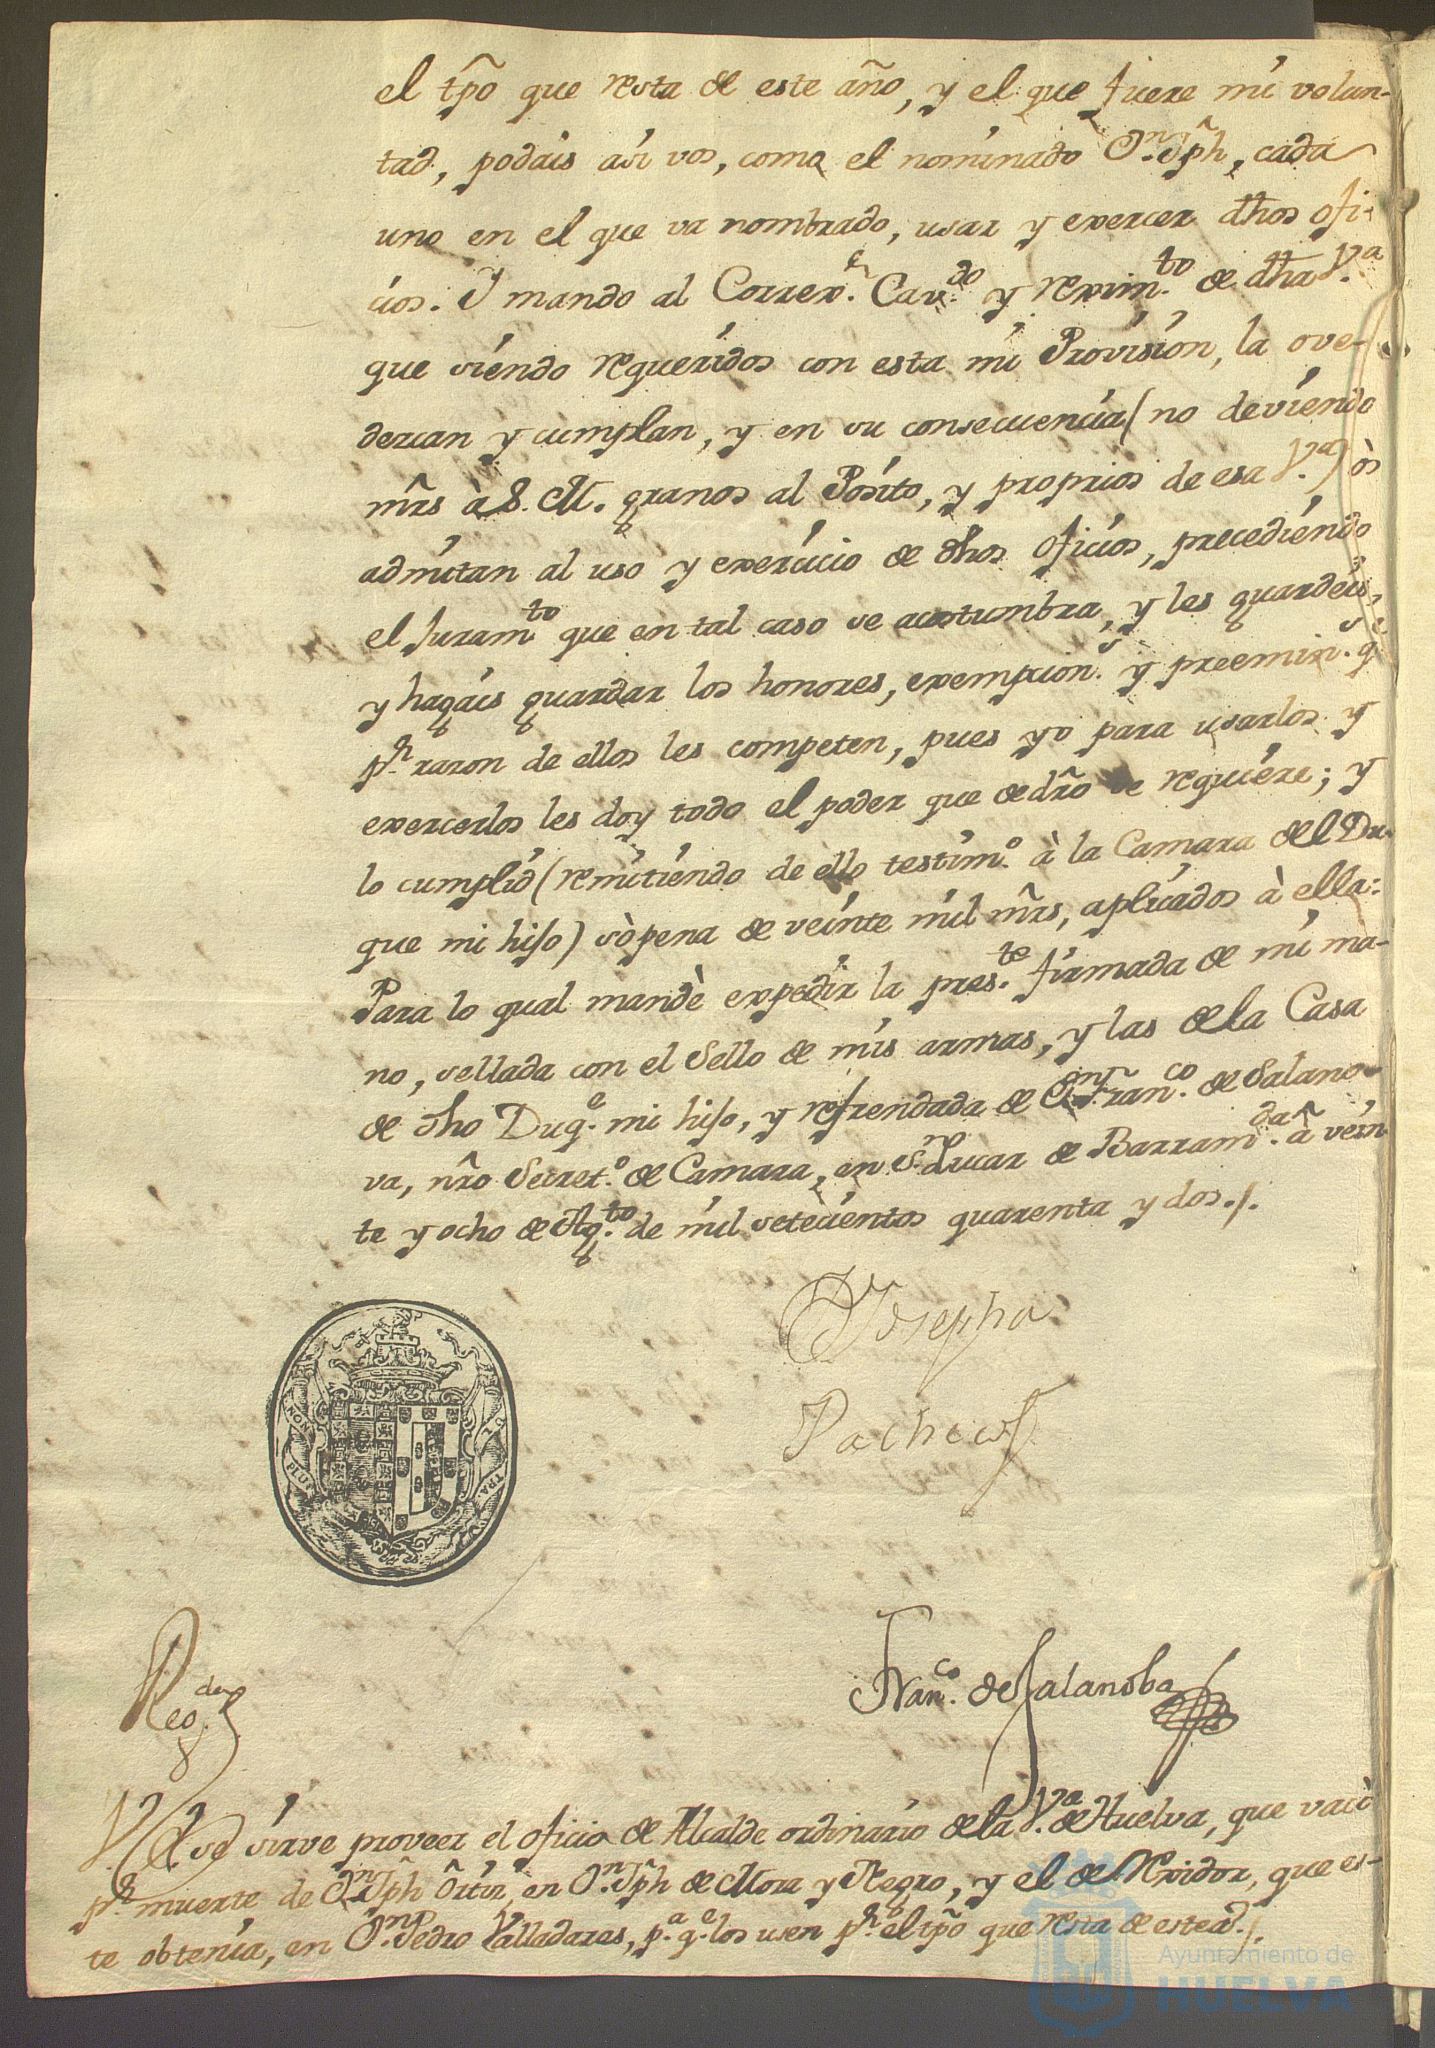 el tp̃o que resta de este año, y el que fuere mi volun-
tad, podais asi vos, como el nominado Dn. Jph̃, cada
uno en el que va nombrado, usar y exercer dh̃os ofi-
cios. Y mando al Correxr. Cavdo. y reximto. de dh̃a Va.
que siendo requeridos con esta mi Provision, la ove-
dezcan y cumplan, y en su consecuencia (no deviendo
mr̃s à S. M. granos al Posito, y proprios de esa Va.) òs
admitan al uso y exercicio de dh̃os oficios, precediendo
el Juramto. que en tal caso se acostumbra, y les guardeis,
y hagais guardar los honores, exempcions. y preemins. qe.
pr. razon de ellos les competen, pues yo para usarlos y
exercerlos les doy todo el poder que de dr̃o se requiere; y
lo cumplid (remitiendo de ello testimo. à la Camara del Du-
que mi hijo) sò pena de veinte mil mr̃s, aplicados à ella:
Para lo qual mandè expedir la preste. firmada de mi ma-
no, sellada con el Sello de mis armas, y las de la Casa
de dh̃o Duqe. mi hijo, y refrendada de Dn. Franco. de Salano-
va, nr̃o Secreto. de Camara, en Sn. Lucar de Barramda. à vein
te y ocho de Agto. de mil setecientos quarenta y dos./.
Josepha
Pacheco
NON
PLUS
UL
TRA
Franco. de Salanoba
Regda.
V. E. se sirve proveer el oficio de Alcalde ordinario de la Va. de Huelva, que vacò
pr. muerte de Dn. Jph̃ Ortiz, en Dn. Jph̃ de Mora y Negro, y el de Rexidor, que es-
te obtenia, en Dn. Pedro Valladares, pa. qe. los usen pr. el tp̃o que resta de este aõ./.
Ayuntamiento de
HUELVA